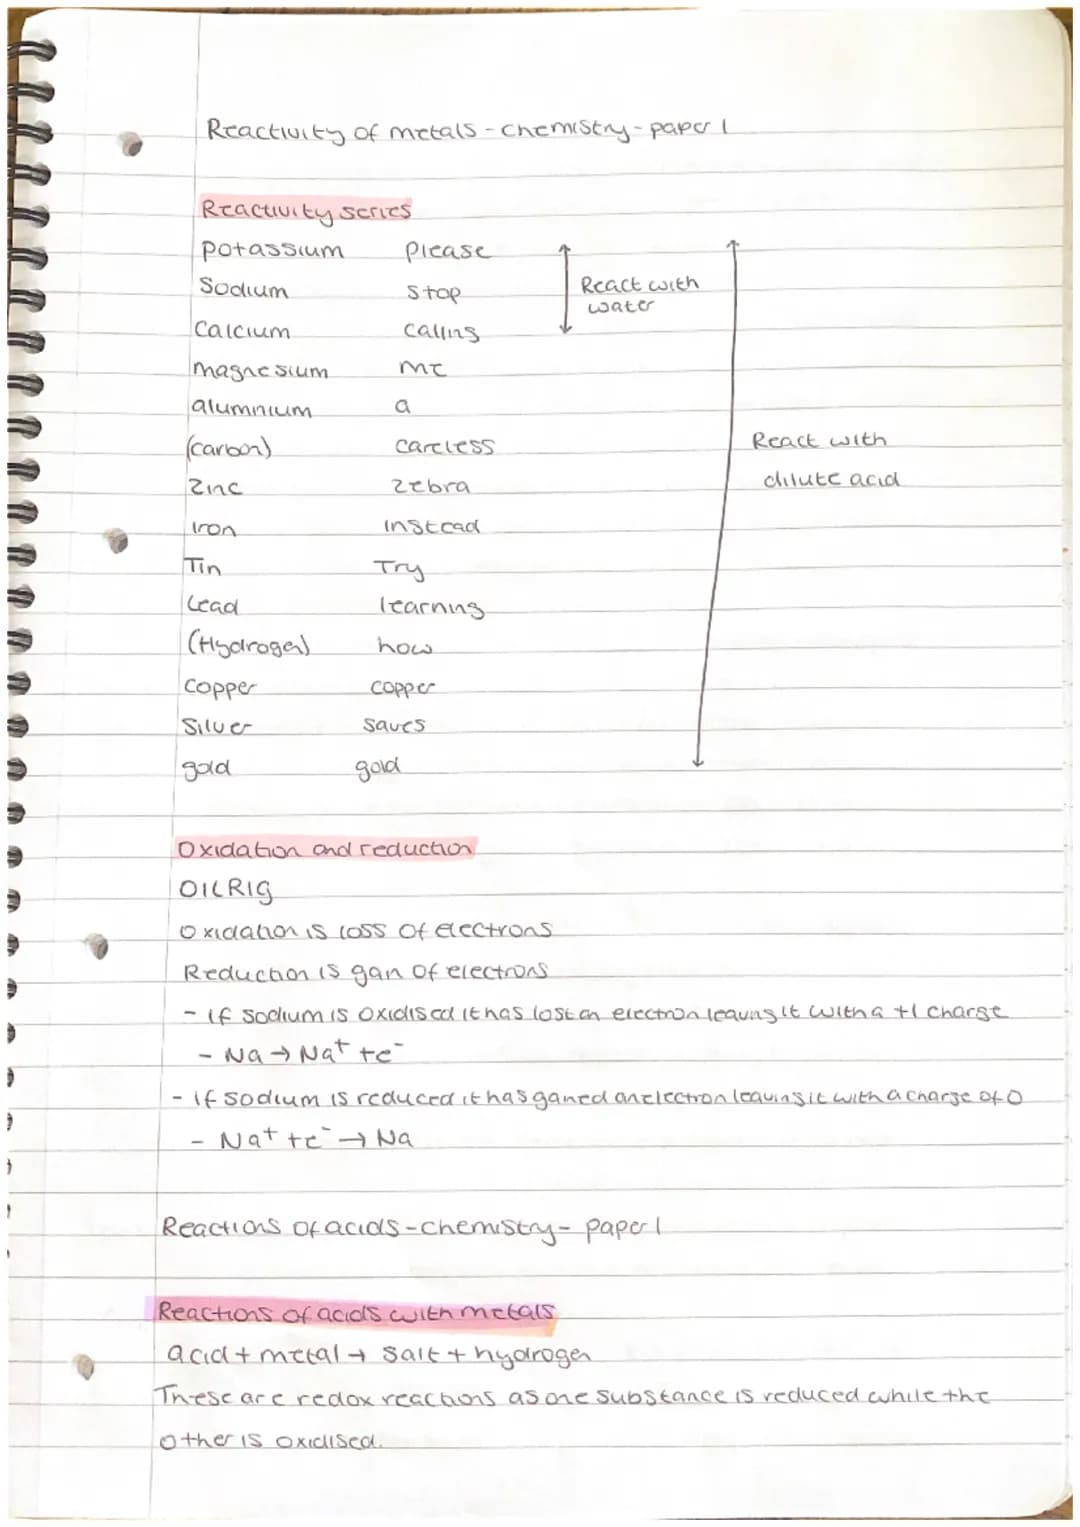 Reactivity of metals - chemistry - paper 1
Reactivity series
potassium please
Sodium stop
Calcium calling
magnesium me
aluminium a
(carbon) careless
Zinc zebra
Iron instead
Tin Try
Lead learning
(Hydrogen) how
Copper copper
Silver saves
gold gold
React with
water
React with
dilute acid
Oxidation and reduction
OILRIG
Oxidation is loss of electrons
Reduction is gain of electrons
- If sodium is oxidised it has lost an electron leaving it with a +1 charge
- Na → Na⁺ + e⁻
- If sodium is reduced it has gained an electron leaving it with a charge of 0
- Na⁺ + e⁻ → Na
Reactions of acids - chemistry - paper 1
Reactions of acids with metals
acid + metal → salt + hydrogen
These are redox reactions as one substance is reduced while the
other is oxidised.